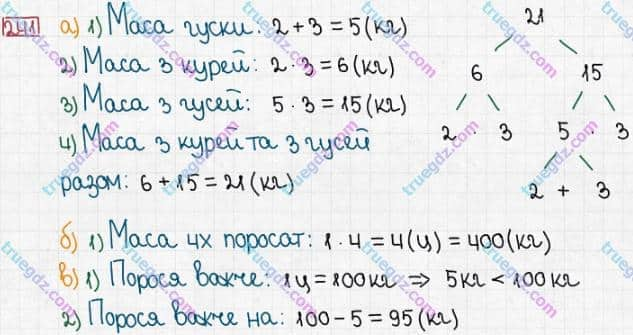 241 а) 1) Маса гуски: 2 + 3 = 5 (кг)
2) Маса 3 курей: 2 · 3 = 6 (кг)
3) Маса 3 гусей: 5 · 3 = 15 (кг)
4) Маса 3 курей та 3 гусей
разом: 6 + 15 = 21 (кг)
21
6 15
2 · 3 5 · 3
2 + 3
б) 1) Маса 4х поросят: 1 · 4 = 4 (ц) = 400 (кг)
в) 1) Порося важче: 1 ц = 100 кг ⇒ 5 кг < 100 кг
2) Порося важче на: 100 - 5 = 95 (кг)
truegdz.com